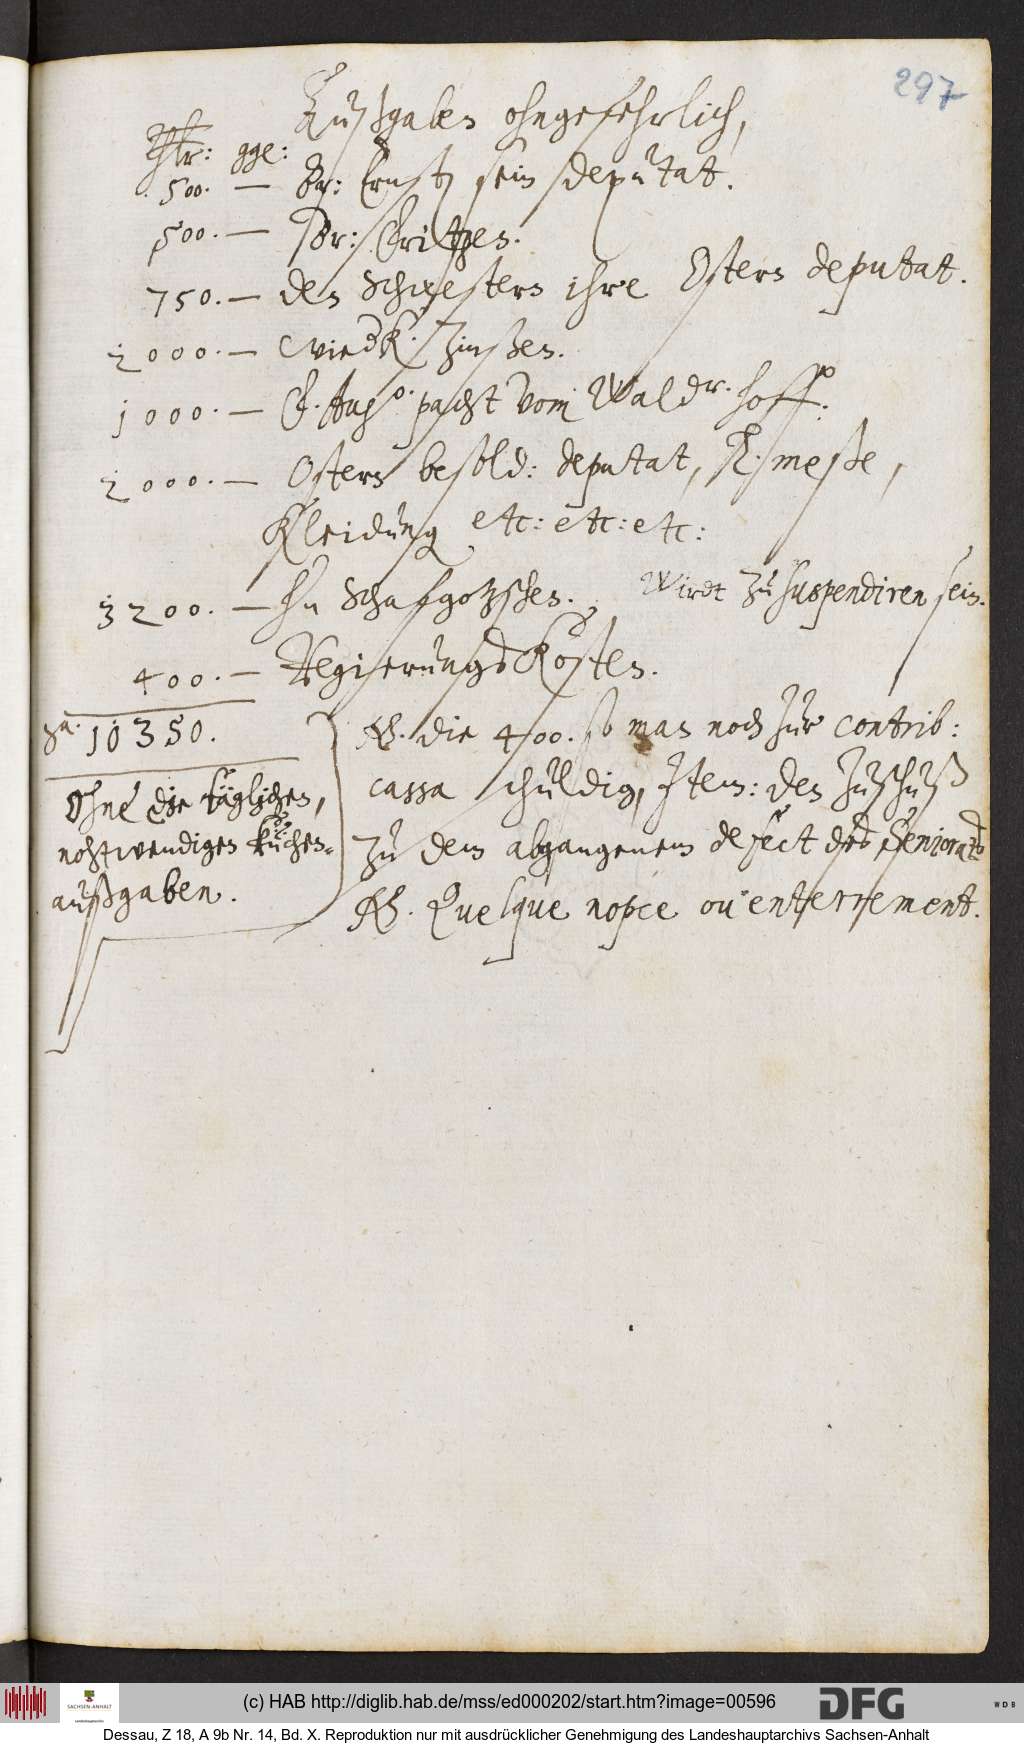 297
Außgaben ohngefehrlich,
Thlr: gge:
500. — Br: Ernst sein deputat.
500. — Br: Fritzen.
750. — den Schwestern ihre Ostern deputat.
2000. — Zinßen.
1000. — F. Aug^o. pacht vom Wald^r. hoff.
2000. — Ostern besold: deputat, meße,
Kleidung etc: etc: etc:
3200. — Schafgotzschen. Wirdt zu suspendiren sein.
400. — RegierungsKosten.
S^a. 10350.
Ohne die täglichen,
nohtwendigen Küchen-
außgaben.
NB. die 400. so man noch zur contrib:
cassa schuldig, Item: den Zuschuß
zu dem abgangenem defect des Seniorats
NB. Quelque nopce ou enterrement.
(c) HAB http://diglib.hab.de/mss/ed000202/start.htm?image=00596
SACHSEN-ANHALT
DFG
WDB
Dessau, Z 18, A 9b Nr. 14, Bd. X. Reproduktion nur mit ausdrücklicher Genehmigung des Landeshauptarchivs Sachsen-Anhalt